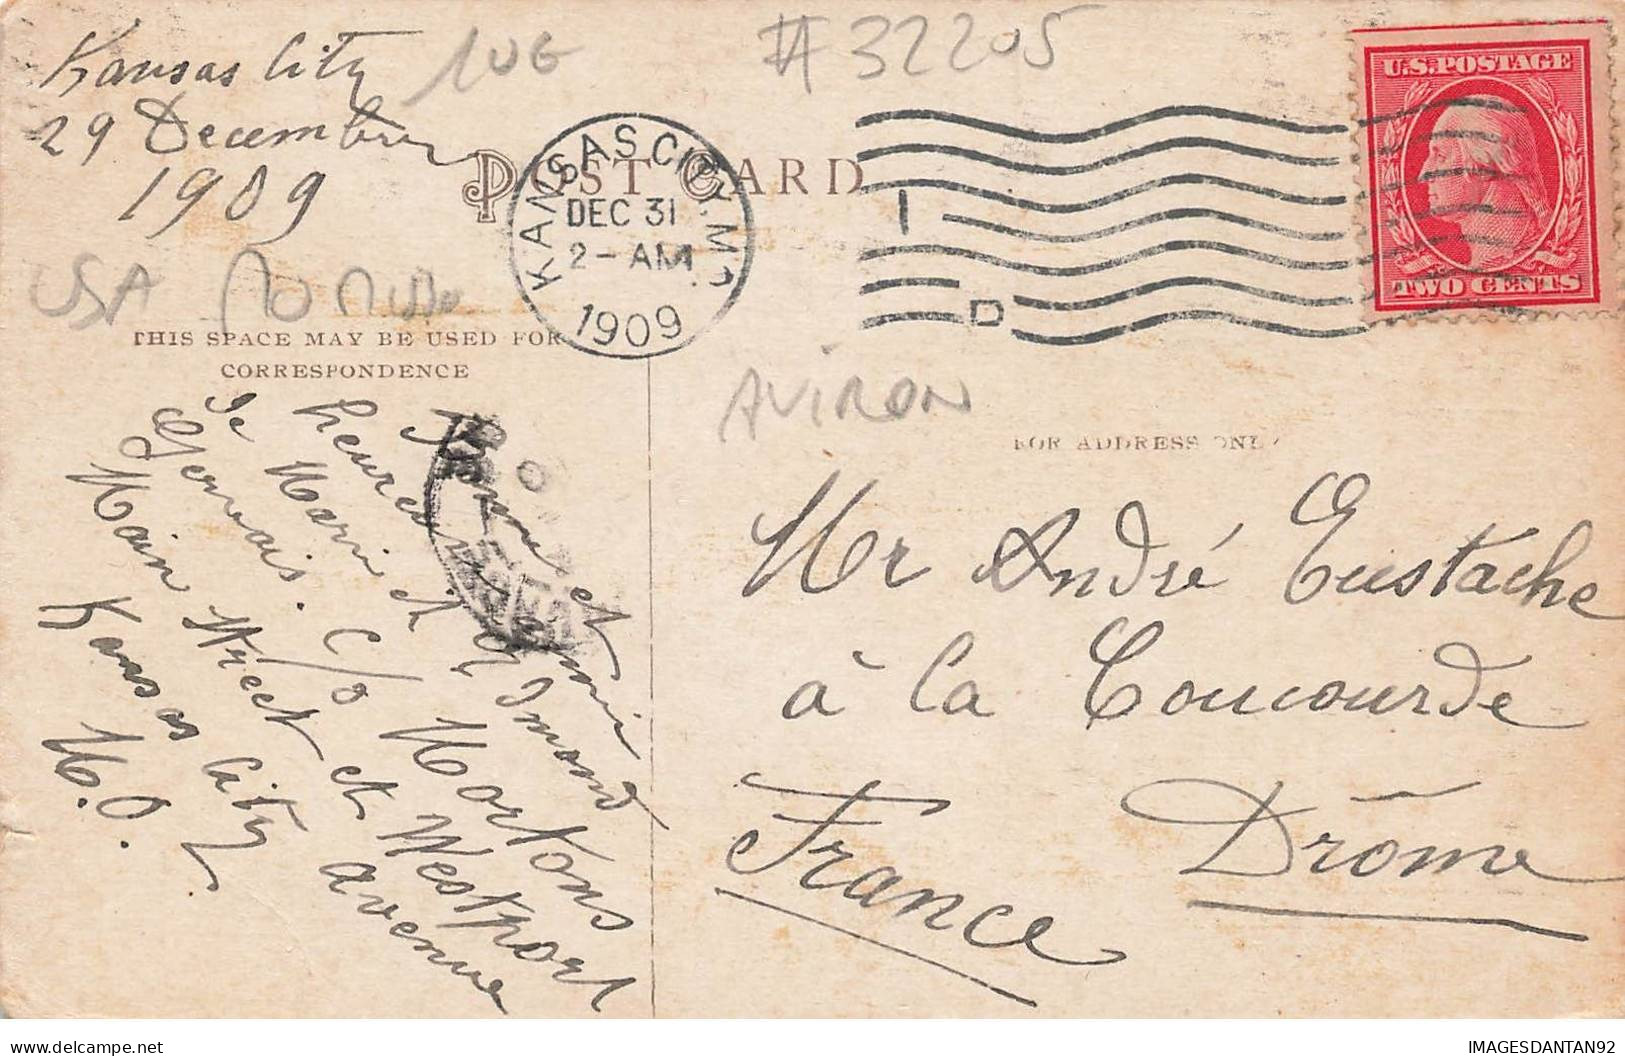 Kansas City
29 Decembre
1909
10€
# 32205
POST CARD
KANSAS CITY, MO.
DEC 31
2-AM
1909
1
D
U.S. POSTAGE
TWO CENTS
USA
THIS SPACE MAY BE USED FOR
CORRESPONDENCE
AVIRON
FOR ADDRESS ONLY
Bonne et
heureuse année
de Marie et Edmond
Gervais. C/o Mortons
Main Street et Westport
avenue
Kansas City
M.O.
Mr André Eustache
à la Coucourde
Drôme
France
IMAGESDANTAN92